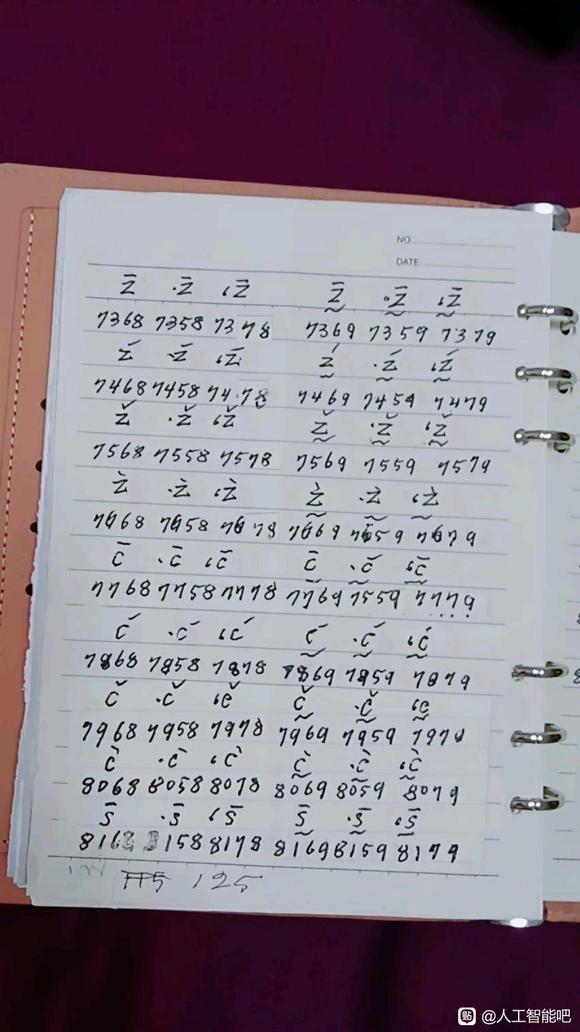 NO.
DATE
z̄ ·z̄ ,z̄ z̰̄ ·z̰̄ ,z̰̄
7368 7358 7378 7369 7359 7379
ź ·ź ,ź ź̰ ·ź̰ ,ź̰
7468 7458 7478 7469 7459 7479
ž ·ž ,ž ž̰ ·ž̰ ,ž̰
7568 7558 7578 7569 7559 7579
z̀ ·z̀ ,z̀ z̰̀ ·z̰̀ ,z̰̀
7668 7658 7678 7669 7659 7679
c̄ ·c̄ ,c̄ c̰̄ ·c̰̄ ,c̰̄
7768 7758 7778 7769 7559 7779
ć ·ć ,ć ć̰ ·ć̰ ,ć̰
7868 7858 7878 7869 7859 7879
č ·č ,č č̰ ·č̰ ,č̰
7968 7958 7978 7969 7959 7979
c̀ ·c̀ ,c̀ c̰̀ ·c̰̀ ,c̰̀
8068 8058 8078 8069 8059 8079
s̄ ·s̄ ,s̄ s̰̄ ·s̰̄ ,s̰̄
8168 8158 8178 8169 8159 8179
125
贴 @人工智能吧